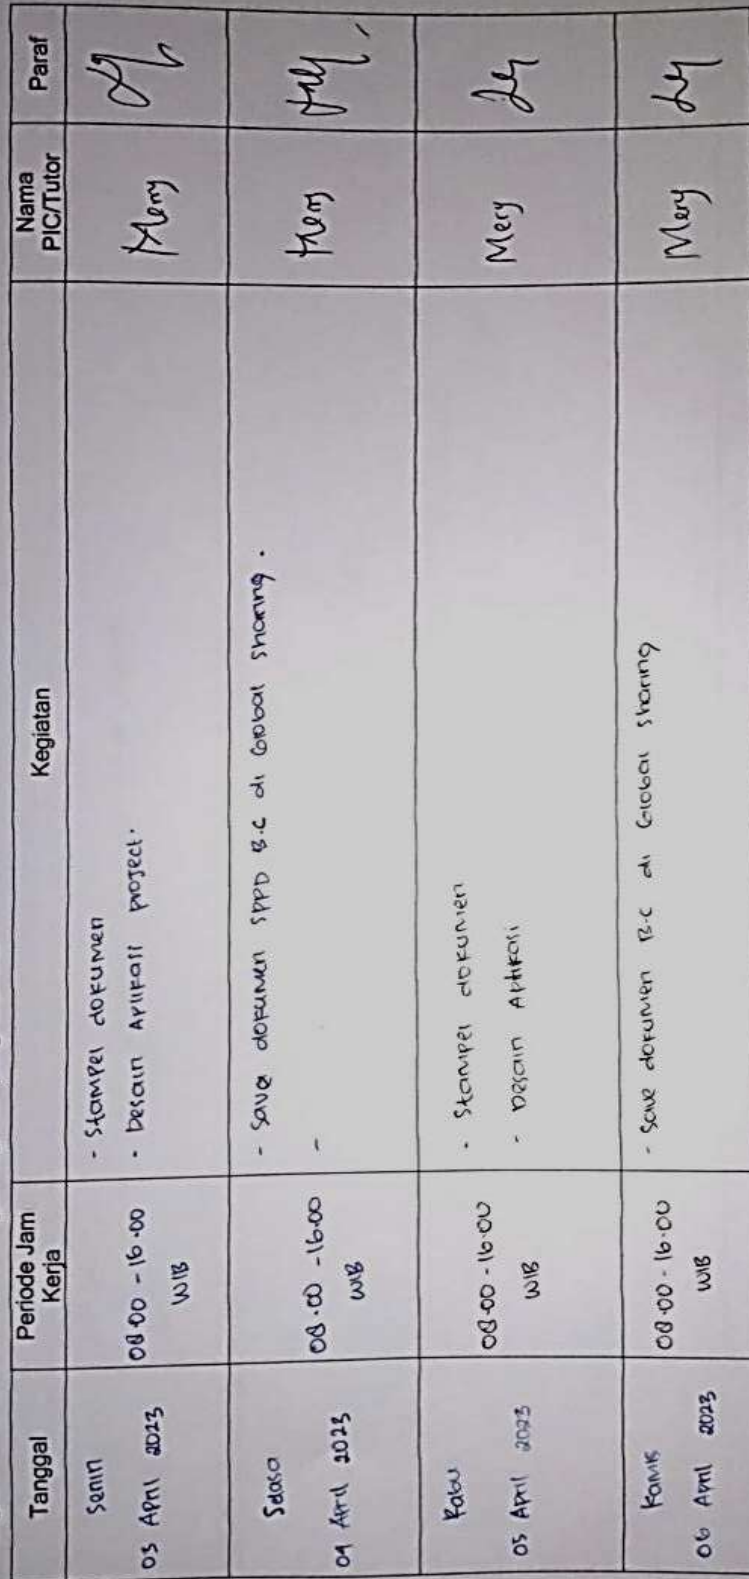 Tanggal
Periode Jam
Kerja
Kegiatan
Nama
PIC/Tutor
Paraf
Senin
03 April 2023
08.00 - 16.00
WIB
- Stampel dokumen
- Desain Aplikasi project.
Mery
Selasa
04 April 2023
08.00 - 16.00
WIB
- Save dokumen SPPD B.C di Global sharing.
-
Mery
Rabu
05 April 2023
08.00 - 16.00
WIB
- Stampel dokumen
- Desain Aplikasi
Mery
Kamis
06 April 2023
08.00 - 16.00
WIB
- Save dokumen B.C di Global sharing
Mery